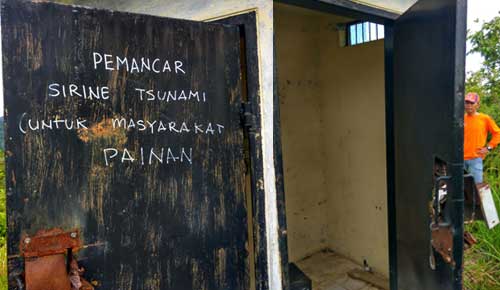 PEMANCAR
SIRINE TSUNAMI
(UNTUK MASYARAKAT
PAINAN